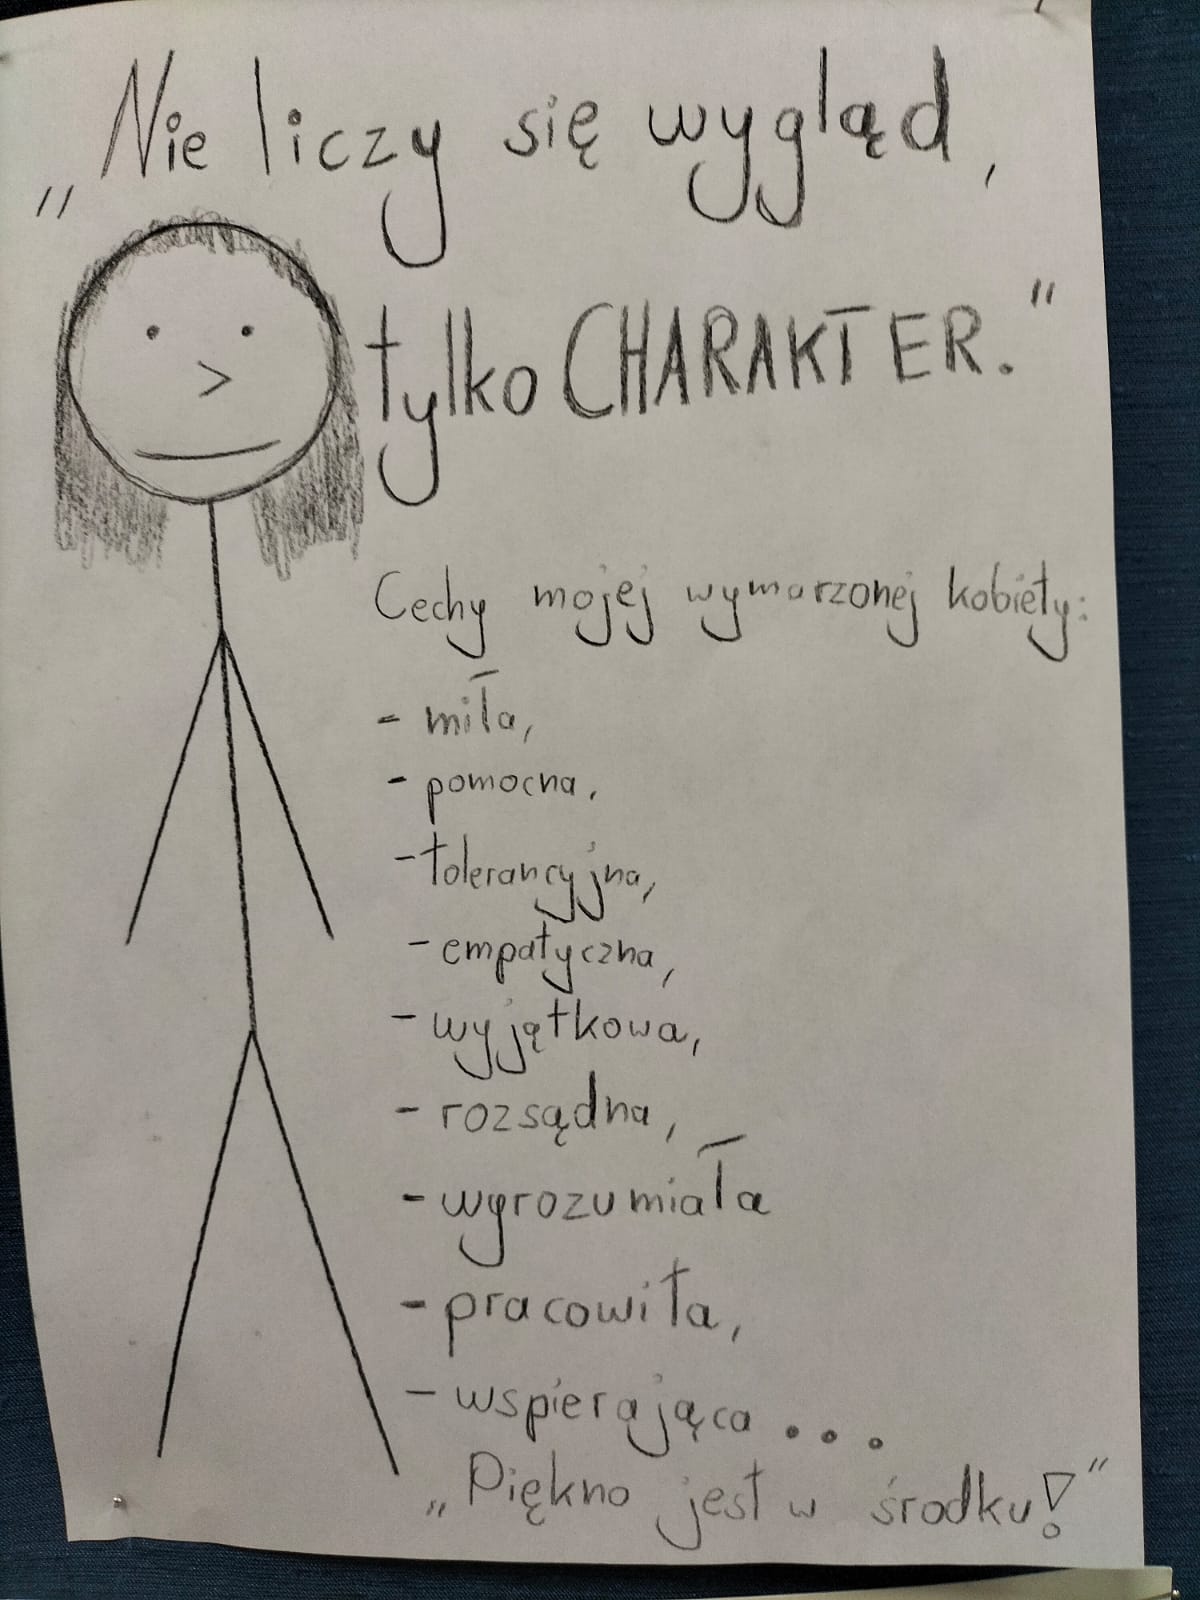 „Nie liczy się wygląd,
tylko CHARAKTER."
Cechy mojej wymarzonej kobiety:
- miła,
- pomocna,
- tolerancyjna,
- empatyczna,
- wyjątkowa,
- rozsądna,
- wyrozumiała
- pracowita,
- wspierająca...
„Piękno jest w środku!"